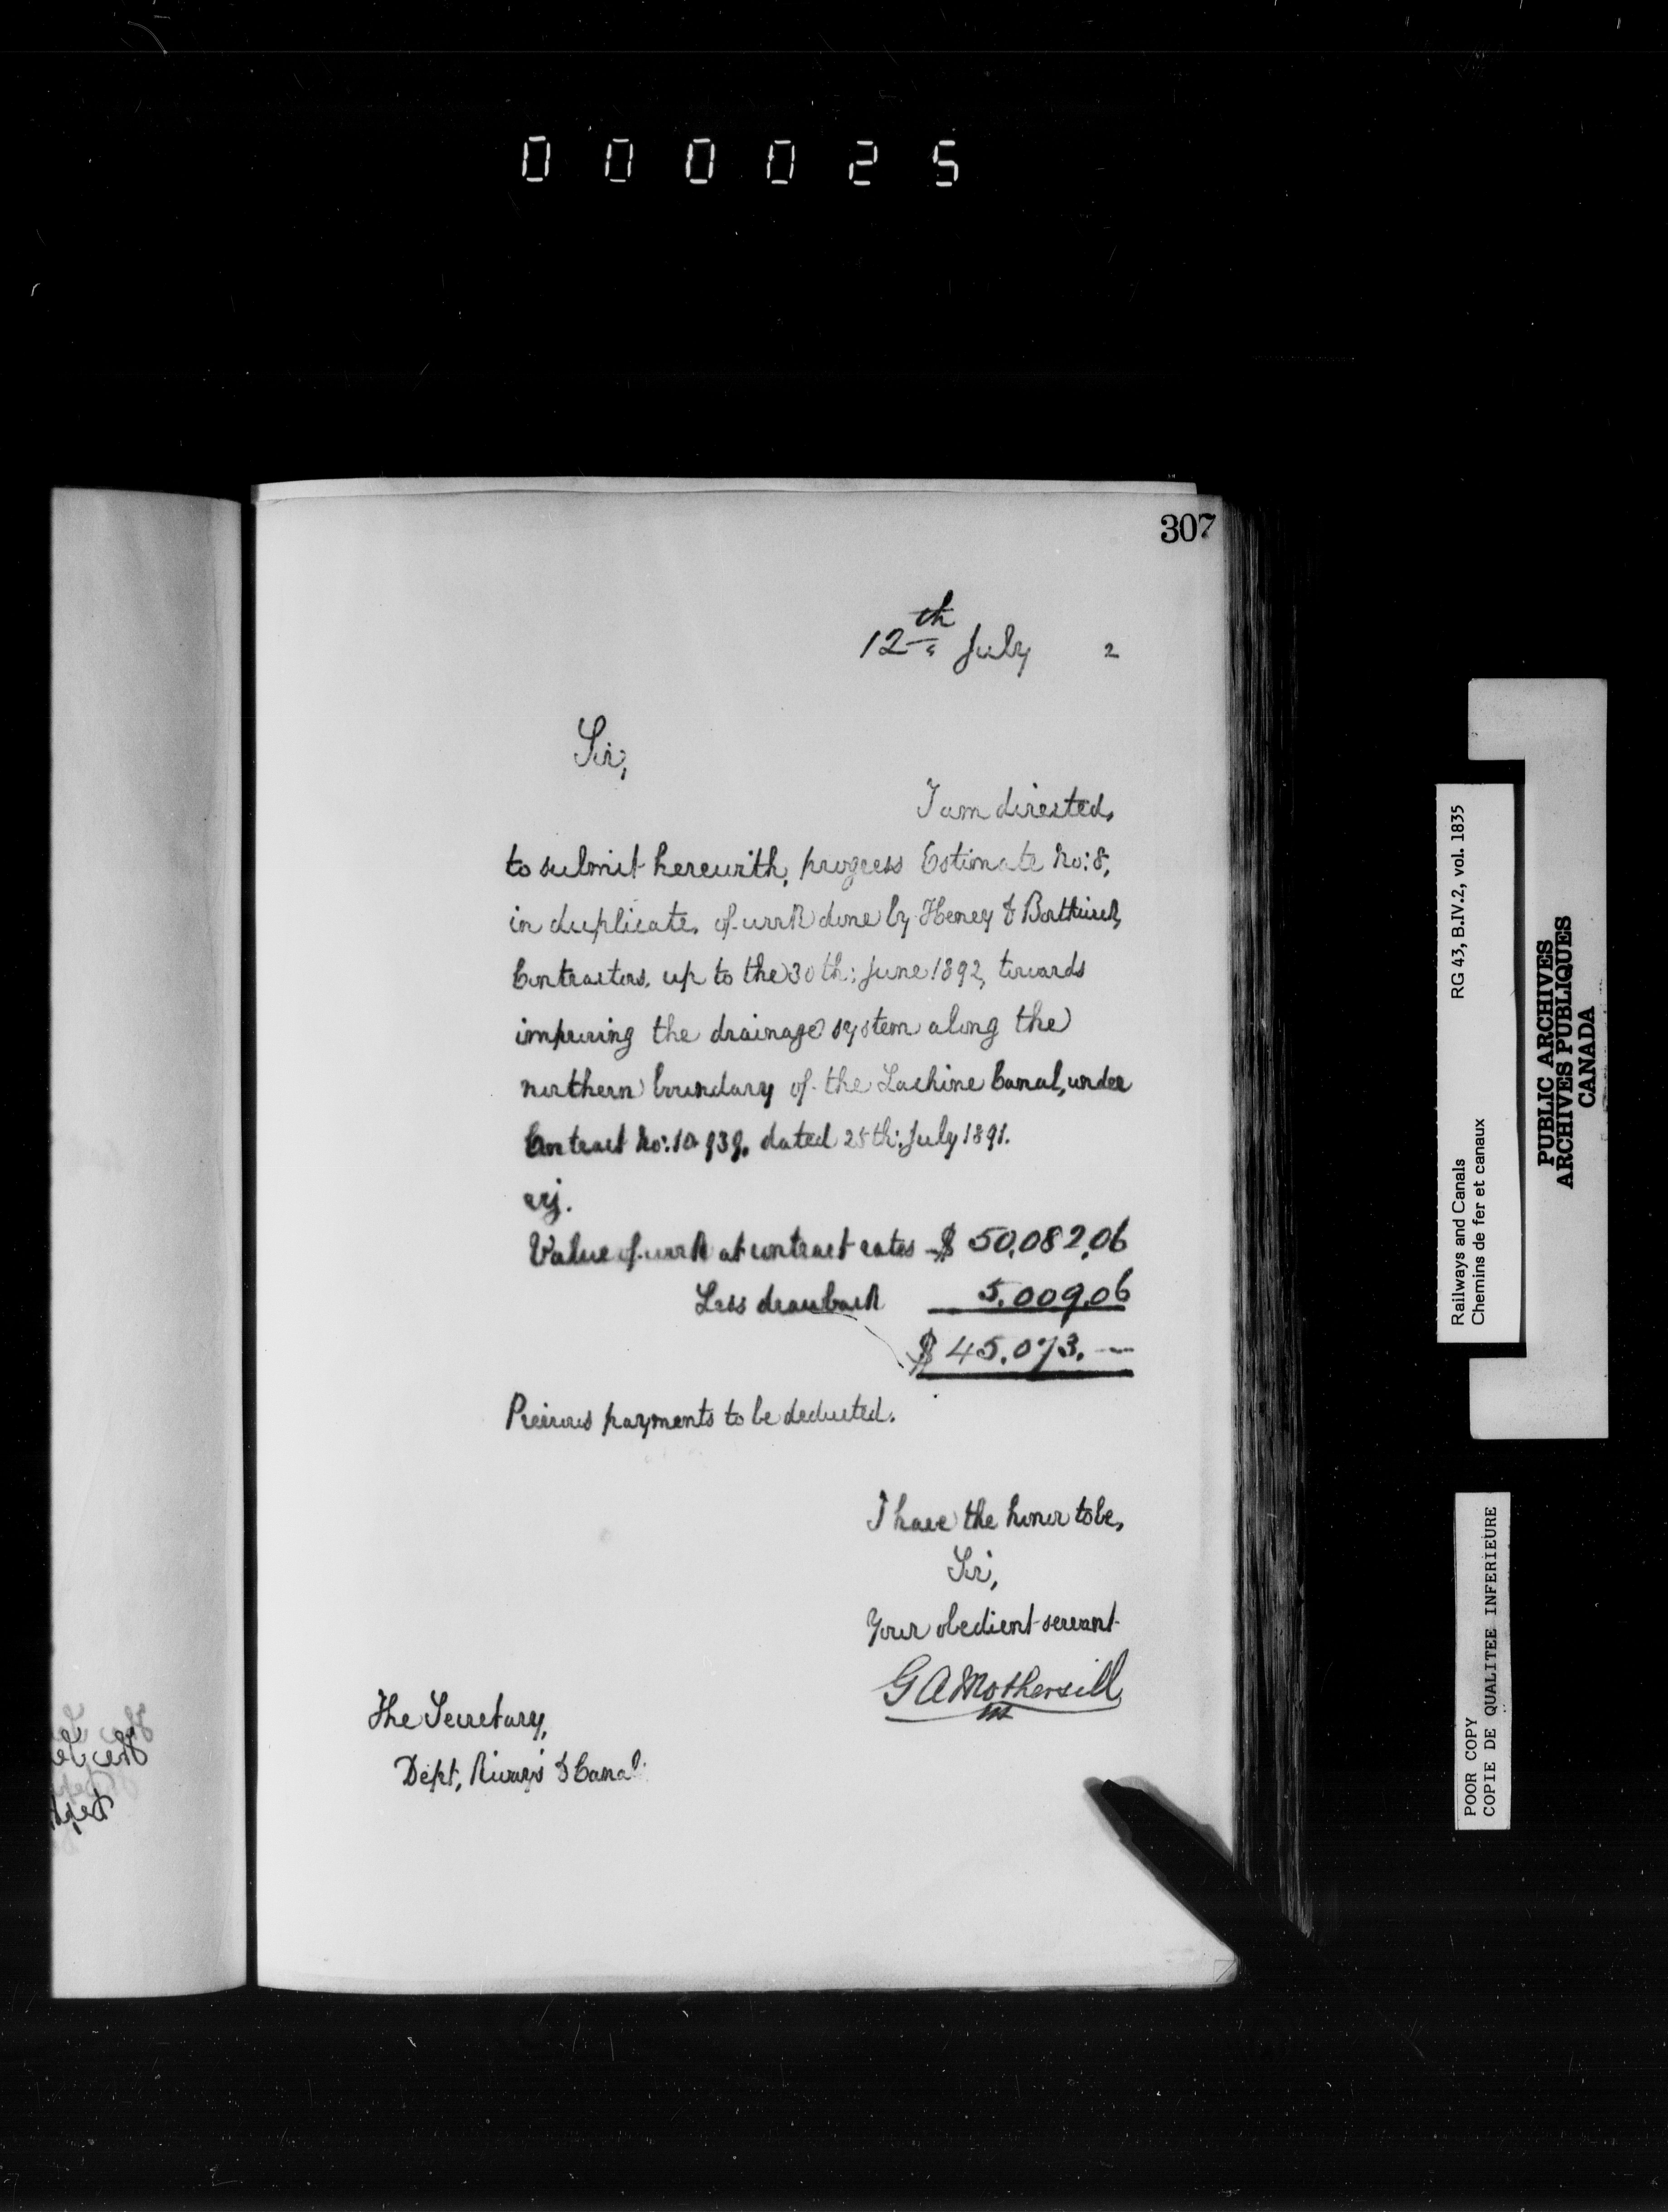 000025
307
12th July 2
Sir,
I am directed,
to submit herewith, progress Estimate No: 8,
in duplicate, of work done by Heney & Borthwick,
Contractors, up to the 30th: June 1892, towards
improving the drainage system along the
northern boundary of the Lachine Canal, under
Contract No: 10939, dated 25th: July 1891.
viz.
Value of work at contract rates $ 50,082,06
Less drawback 5.009.06
$ 45.073. —
Previous payments to be deducted.
I have the honor to be,
Sir,
Your obedient servant
G A Mothersill
The Secretary,
Dept, Riways & Canal
Railways and Canals RG 43, B.IV.2, vol. 1835
Chemins de fer et canaux
PUBLIC ARCHIVES
ARCHIVES PUBLIQUES
CANADA
POOR COPY
COPIE DE QUALITEE INFERIEURE